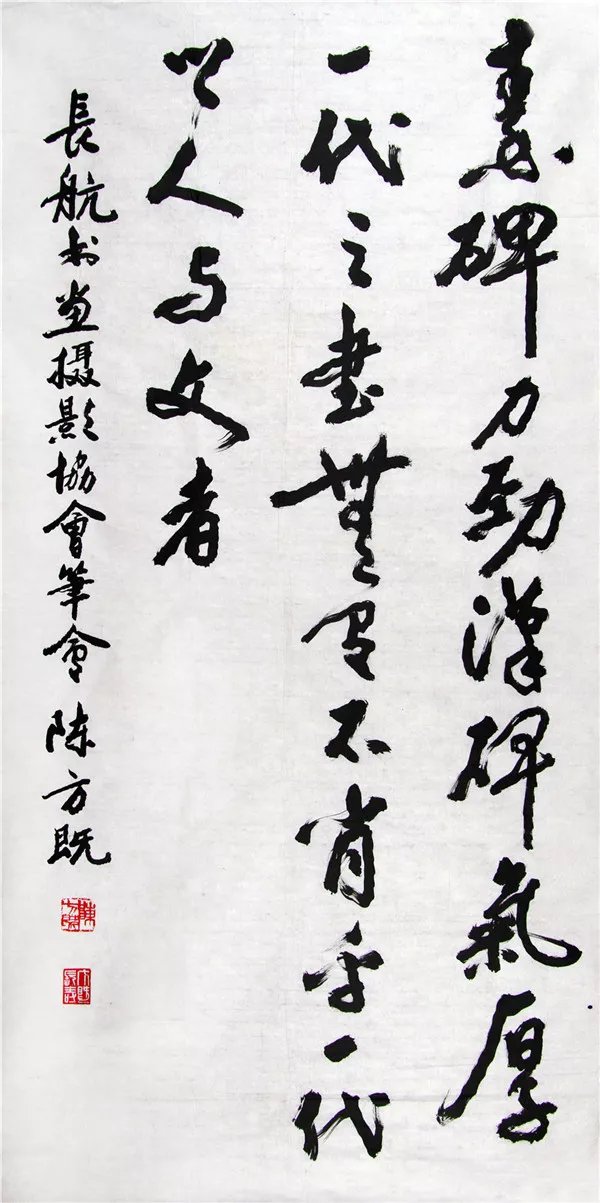 秦碑力勁漢碑氣厚
一代之書無有不肖乎一代
之人与文者
長航书画摄影協會筆會 陈方既